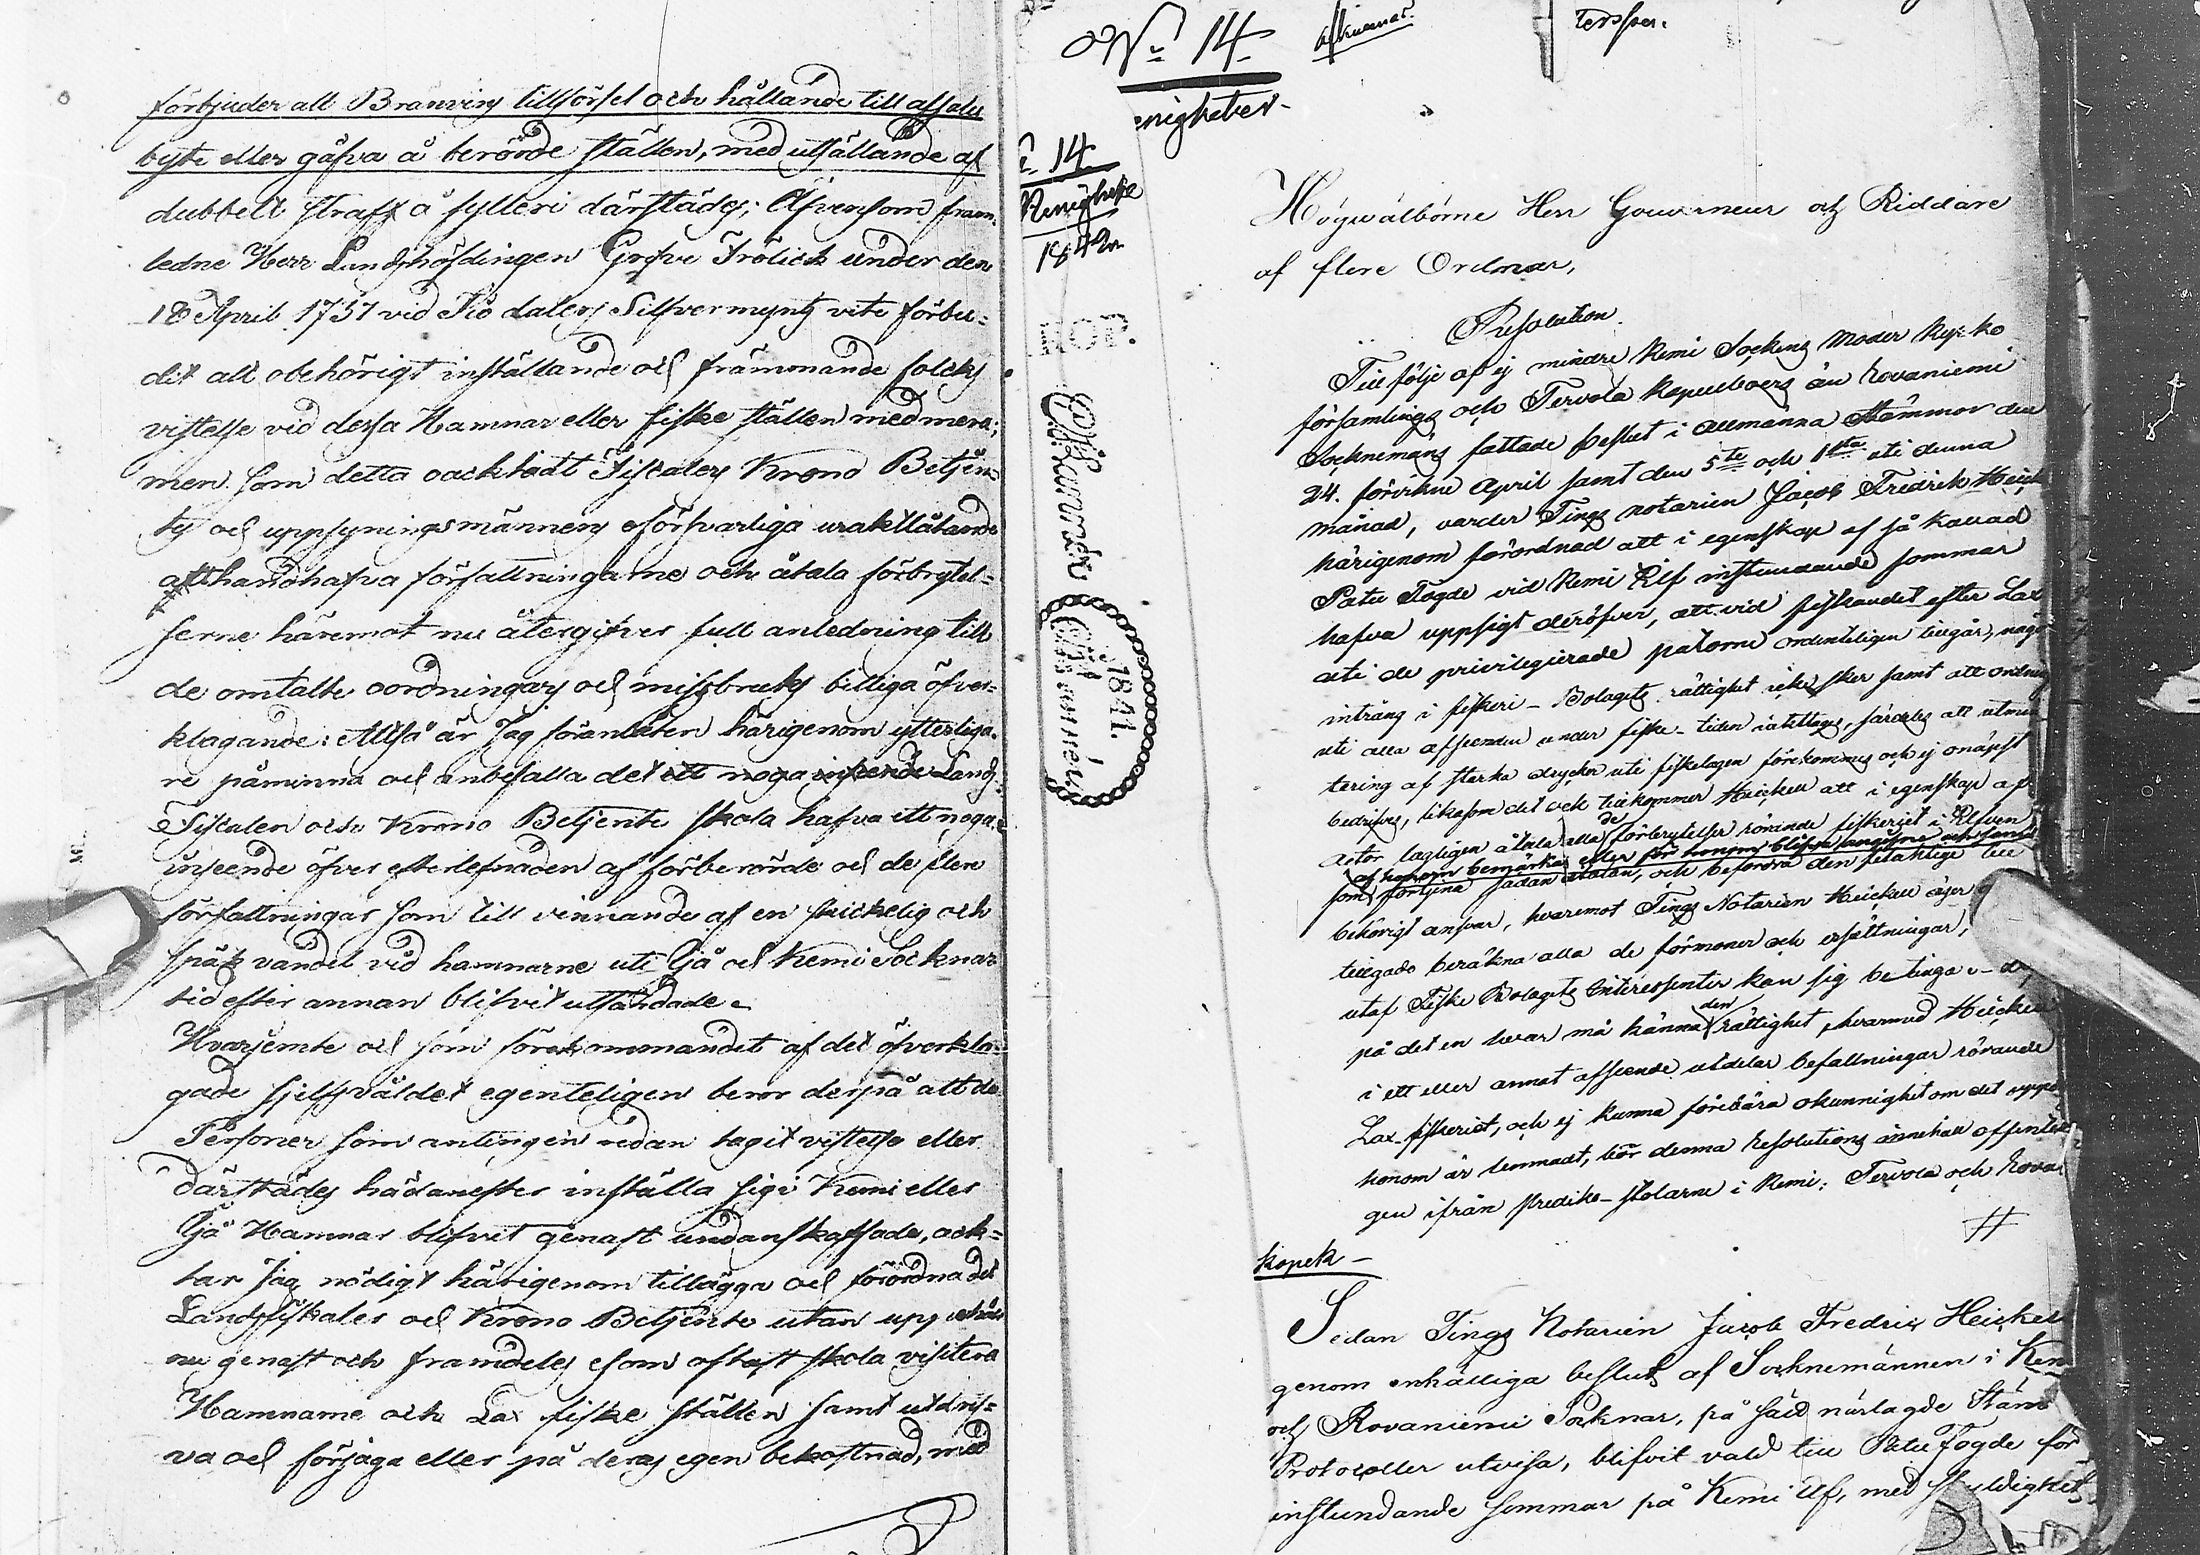 förbjuder all Branvins tillförsel och hållande till afsalu
byte eller gåfva å berörde ställen, med utsällande af
dubbelt straff å fylleri därstädes; Äfvensom fram-
ledne Herr Landshöfdingen Grefve Frölich under den
18 April 1737 vid Tio dalers Silfvermynts vite förbu-
dit all obehörigt inställande och främmande folcks
vistelse vid dessa Hamnar eller fiske ställen med mera;
men som detta oacktadt Fiscalers Krono Betjen-
ts och uppsyningsmännens oförsvarliga uraktlåtande
att handhafva författningarne och åtala förbrytel-
serne häremot nu återgifver full anledning till
de omtalte oordningars och missbruks billiga öfver-
klagande: Alltså är Jag föranlåten härigenom ytterliga-
re påminna och anbefalla det ett noga inseende Lands
Fiscalen och Krono Betjente skola hafva ett noga
inseende öfver efterlefnaden af förberörde och de flere
författningar som till vinnande af en skickelig och
späk vandel vid hamnarne uti Ijå och Kemi Socknar
tid efter annan blifvit utfärdade.
Hvarjemte och som förekommandet af det öfverkla-
gade sjelfsvåldet egenteligen beror derpå att de
Personer som antingen redan tagit vistelse eller
därstädes hädanefter inställa sig i Kemi eller
Ijå Hamnar blifvit genast undanskaffade, ack-
tar Jag nödigt härigenom tillägga och förordna det
Landsfiskaler och Krono Betjente utan uppehåll
nu genast och framdeles som oftast skola visitera
Hamnarne och Lax fiske ställen samt utdrif-
va och förjaga eller på deras egen bekostnad, med
No 14
enigheter-
14
1842
1841.
terssper.
Högwälborne Herr Gouverneur och Riddare
af flere Ordnar,
Resolution
Till följe af ej mindre Kemi Sockens Moder Kyrko
församlings och Tervola Kapellboers än Rovaniemi
Socknemäns fattade beslut i allmänna Stämmor den
24. förvikne April samt den 5te och 1sta uti denna
månad, varder Tings notarien Jacob Fredrik Heick
härigenom förordnad att i egenskap af så kallad
Patu Fogde vid Kemi Elf instundande sommar
hafva uppsigt deröfver, att vid fiskandet efter Lax
uti de privilegierade patorne ordenteligen tillgår, någo
intrång i fiskeri-Bolagets rättighet icke sker samt att ordning
uti alla afseenden under fiske-tiden iakttages, särdeles att utmin
tering af starka drycker uti fiskelagen förekommes och ej onäpst
bedrifves, likasom det och tillkommer Heickell att i egenskap af
actor lagligen åtala alla de förbrytelser rörande fiskeriet i Elfven
af honom bemärkas eller för honom blifva angifne och samt
som förtjena sådan åtalan, och befordra den felaktige till
behörigt ansvar, hvaremot Tings Notarien Heickell äger
tillgodo beräkna alla de förmoner och ersättningar,
utaf Fiske Bolagets Interessenter kan sig betinga
på det en hvar må känna den rättighet, hvarmed Heickell
i ett eller annat afseende utdelar befallningar rörande
Lax-fiskeriet, och ej kunna förebära okunnighet om det uppd
honom är lemnadt, bör denna resolutions innehåll offentli
gen ifrån predikostolarne i Kemi, Tervola och Rova
#
kopek-
Sedan Tings Notarien Jacob Fredric Heickel
genom enhälliga beslut af Socknemännen i Kem
och Rovaniemi Socknar, på säid närlagde Stäm
Protocoller utvisa, blifvit vald till Patu Fogde för
instundande sommar på Kemi Elf, med skyldighet